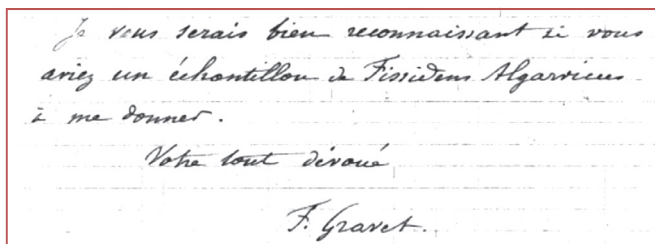 Je vous serais bien reconnaissant si vous
aviez un échantillon de Fissidens Algarvicus
à me donner.
Votre tout dévoué
F. Gravet.